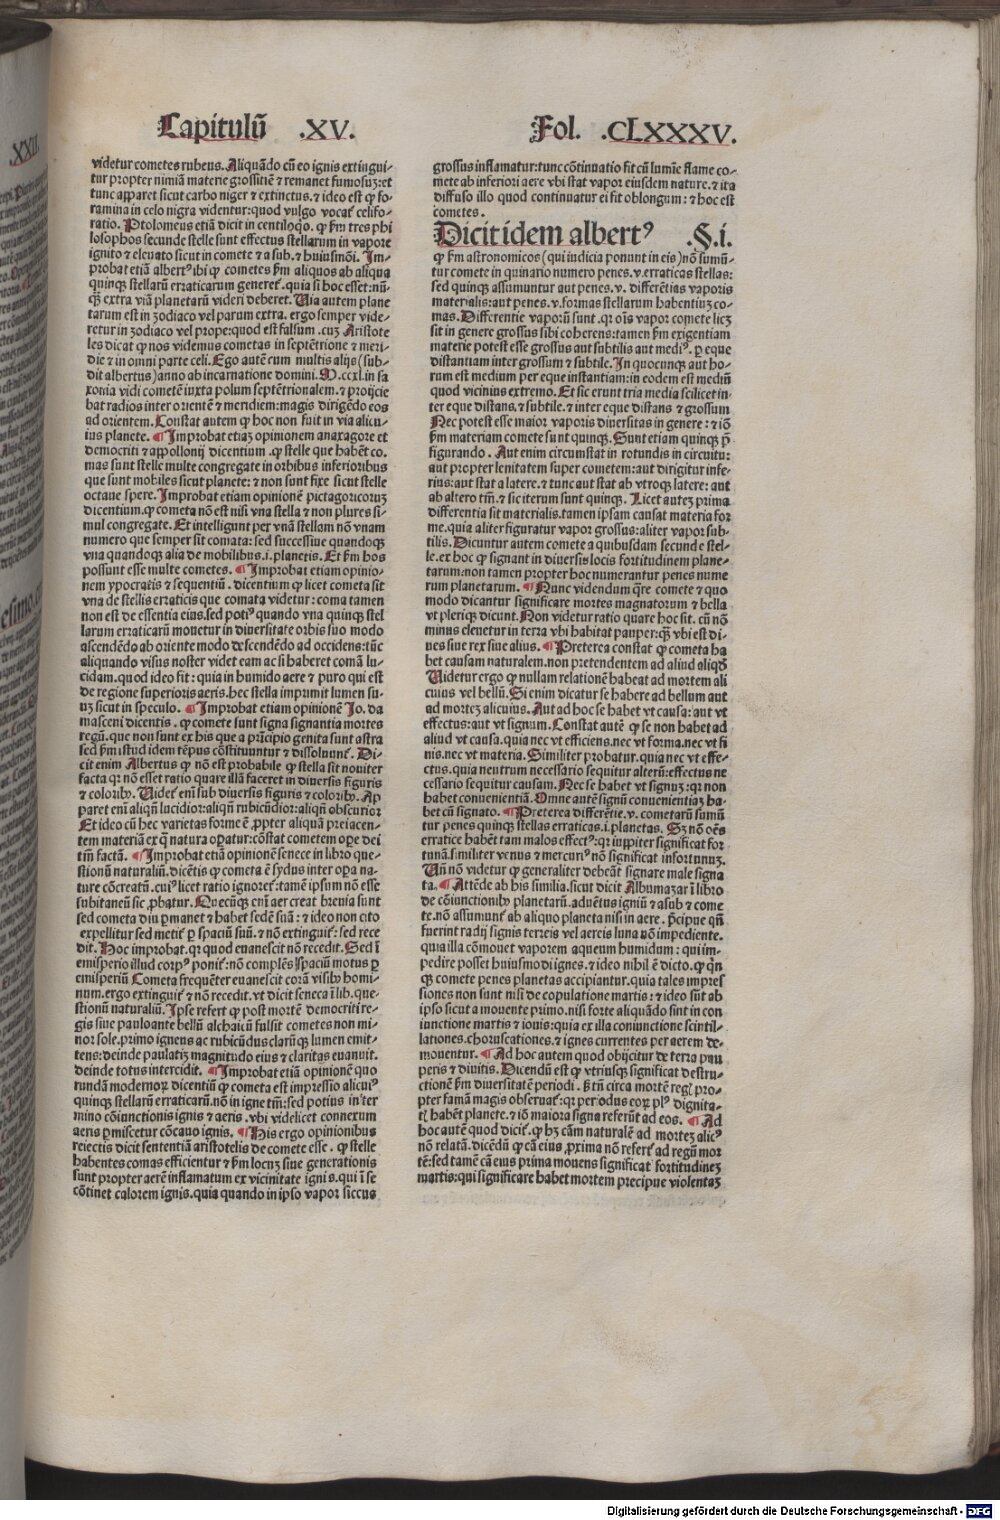 Capitulū .XV.
Fol. .CLXXXV.
videtur cometes rubeus. Aliquādo cū eo ignis extingui-
tur propter nimiā materie grossitiē ⁊ remanet fumosuʒ: et
tunc apparet sicut carbo niger ⁊ extinctus. ⁊ ideo est ꝙ fo-
ramina in celo nigra videntur: quod vulgo vocat̄ celifo-
ratio. Ptolomeus etiā dicit in centiloqio. ꝙ ẜm tres phi
losophos secunde stelle sunt effectus stellarum in vapore
ignito ⁊ eleuato sicut in comete ⁊ a sub. ⁊ huiusmōi. Im-
probat etiā albertꝰ ibi ꝙ cometes ẜm aliquos ab aliqua
quinqꝫ stellarū erraticarum generet̄. quia si hoc esset: nū-
qꝫ̄ extra viā planetarū videri deberet. Uia autem plane
tarum est in zodiaco vel parum extra. ergo semper vide-
retur in zodiaco vel prope: quod est falsum. cuʒ Aristote
les dicat ꝙ nos videmus cometas in septētrione ⁊ meri-
die ⁊ in omni parte celi. Ego autē cum multis alijs (sub-
dit albertus) anno ab incarnatione domini. M.ccxl. in sa
xonia vidi cometē iuxta polum septētrionalem. ⁊ proijcie
bat radios inter orientē ⁊ meridiem: magis dirigēdo eos
ad orientem. Constat autem ꝙ hoc non fuit in via alicu-
ius planete. ¶ Improbat etiaʒ opinionem anaxagore et
democriti ⁊ appollonij dicentium. ꝙ stelle que habēt co.
mas sunt stelle multe congregate in orbibus inferioribus
que sunt mobiles sicut planete: ⁊ non sunt fixe sicut stelle
octaue spere. Improbat etiam opinionē pictagoricoruʒ
dicentium. ꝙ cometa nō est nisi vna stella ⁊ non plures si-
mul congregate. Et intelligunt per vnā stellam nō vnam
numero que semper sit comata: sed successiue quandoqꝫ
vna quandoqꝫ alia de mobilibus. i. planetis. Et ẜm hos
possunt esse multe cometes. ¶ Improbat etiam opinio-
nem ypocratis ⁊ sequentiū. dicentium ꝙ licet cometa sit
vna de stellis erraticis que comata videtur: coma tamen
non est de essentia eius. sed potiꝰ quando vna quinqꝫ stel
larum erraticarū mouetur in diuersitate orbis suo modo
ascendēdo ab oriente modo descendēdo ad occidens: tūc
aliquando visus noster videt eam ac si haberet comā lu-
cidam. quod ideo fit: quia in humido aere ⁊ puro qui est
de regione superioris aeris. hec stella imprimit lumen su-
uʒ sicut in speculo. ¶ Improbat etiam opinionē Io. da
masceni dicentis. ꝙ comete sunt signa signantia mortes
regū. que non sunt ex his que a prīcipio genita sunt astra
sed ẜm istud idem tēpus cōstituuntur ⁊ dissoluunt̄. Di-
cit enim Albertus ꝙ nō est probabile ꝙ stella sit nouiter
facta qꝛ nō esset ratio quare illā faceret in diuersis figuris
⁊ coloribꝫ. Uidet̄ em̄ sub diuersis figuris ⁊ coloribꝫ. Ap
paret em̄ aliqn̄ lucidior: aliqn̄ rubicūdior: aliqn̄ obscurior
Et ideo cū hec varietas forme ē ꝓpter aliquā preiacen-
tem materiā ex q̄ natura operatur: cōstat cometem ope dei
tm̄ factā. ¶ Improbat etiā opinionē senece in libro que-
stionū naturaliū. dicētis ꝙ cometa ē sydus inter opera na-
ture cōcreatū. cuiꝰ licet ratio ignoret̄: tamē ipsum nō esse
subitaneū sic ꝓbatur. Quecūqꝫ em̄ aer creat breuia sunt
sed cometa diu permanet ⁊ habet sedē suā: ⁊ ideo non cito
expellitur sed metit̄ per spaciū suū. ⁊ nō extinguit̄: sed rece
dit. Hoc improbat. qꝛ quod euanescit nō recedit. Sed ī
emisperio illud corpꝰ ponit̄: nō complēs spaciū motus per
emisperiū Cometa frequēter euanescit corā visibꝫ homi-
num. ergo extinguit̄ ⁊ nō recedit. vt dicit seneca ī lib. que-
stionū naturaliū. Ipse refert ꝙ post mortē democriti re-
gis siue pauloante bellū alchaicū fulsit cometes non mi-
nor sole. primo igneus ac rubicūdus clarūqꝫ lumen emit-
tens: deinde paulatiʒ magnitudo eius ⁊ claritas euanuit.
deinde totus intercidit. ¶ Improbat etiā opinionē quo
rundā modernoꝝ dicentiū ꝙ cometa est impressio alicuiꝰ
quinqꝫ stellarū erraticarū. nō in igne tm̄: sed potius in ter
mino cōiunctionis ignis ⁊ aeris. vbi videlicet connexum
aeris permiscetur cōcauo ignis. ¶ His ergo opinionibus
reiectis dicit sententiā aristotelis de comete esse. ꝙ stelle
habentes comas efficientur ⁊ ẜm locuʒ siue generationis
sunt propter aerē inflamatum ex vicinitate ignis. qui ī se
cōtinet calorem ignis. quia quando in ipso vapor siccus
grossus inflamatur: tunc cōtinuatio fit cū lumīe flame co-
mete ab inferiori aere vbi stat vapor eiusdem nature. ⁊ ita
diffuso illo quod continuatur ei fit oblongum: ⁊ hoc est
cometes.
Dicit idem albertꝰ .§.i.
ꝙ ẜm astronomicos (qui iudicia ponunt in eis) nō sumū-
tur comete in quinario numero penes. v. erraticas stellas:
sed quinqꝫ assumuntur aut penes. v. differētias vaporis
materialis: aut penes. v. formas stellarum habentiuʒ co-
mas. Differentie vaporū sunt. qꝛ oīs vapor comete licʒ
sit in genere grossus sibi coherens: tamen ẜm exigentiam
materie potest esse grossus aut subtilis aut mediꝰ. per eque
distantiam inter grossum ⁊ subtile. In quocunqꝫ aut ho-
rum est medium per eque instantiam: in eodem est mediū
quod vicinius extremo. Et sic erunt tria media scilicet in-
ter eque distans. ⁊ subtile. ⁊ inter eque distans ⁊ grossum
Nec potest esse maior vaporis diuersitas in genere: ⁊ iō
ẜm materiam comete sunt quinqꝫ. Sunt etiam quinqꝫ per
figurando. Aut enim circumstat in rotundis in circuitu:
aut propter lenitatem super cometem: aut dirigitur infe-
rius: aut stat a latere. ⁊ tunc aut stat ab vtroqꝫ latere: aut
ab altero tm̄. ⁊ sic iterum sunt quinqꝫ. Licet auteʒ prima
differentia sit materialis. tamen ipsam causat materia for
me. quia aliter figuratur vapor grossus: aliter vapor sub-
tilis. Dicuntur autem comete a quibusdam secunde stel-
le. ex hoc ꝙ signant in diuersis locis fortitudinem plane-
tarum: non tamen propter hoc numerantur penes nume
rum planetarum. ¶ Nunc videndum qr̄e comete ⁊ quo
modo dicantur significare mortes magnatorum ⁊ bella
vt pleriqꝫ dicunt. Non videtur ratio quare hoc sit. cū nō
minus eleuetur in terra vbi habitat pauper. qꝫ̄ vbi est di-
ues siue rex siue alius. ¶ Preterea constat ꝙ cometa ha
bet causam naturalem. non pretendentem ad aliud aliqd̄
Uidetur ergo ꝙ nullam relationē habeat ad mortem ali
cuius vel bellū. Si enim dicatur se habere ad bellum aut
ad morteʒ alicuius. Aut ad hoc se habet vt causa: aut vt
effectus: aut vt signum. Constat autē ꝙ se non habet ad
aliud vt causa. quia nec vt efficiens. nec vt forma. nec vt fi
nis. nec vt materia. Similiter probatur. quia nec vt effe-
ctus. quia neutrum necessario sequitur alterū: effectus ne
cessario sequitur causam. Nec se habet vt signuʒ: qꝛ non
habet conuenientiā. Omne autē signū conuenientiaʒ ha-
bet cū signato. ¶ Preterea differētie. v. cometarū sumū
tur penes quinqꝫ stellas erraticas. i. planetas. Sʒ nō oēs
erratice habēt tam malos effectꝰ: qꝛ iuppiter significat for
tunā. similiter venus ⁊ mercuriꝰ nō significat infortuniuʒ.
Un̄ nō videtur ꝙ generaliter debeāt signare male signa
ta. ¶ Attēde ab his similia. sicut dicit Albumazar ī libro
de cōiunctionibꝫ planetarū. aduētus igniū ⁊ asub ⁊ come
te. nō assumunt̄ ab aliquo planeta nisi in aere. p̄cipue qn̄
fuerint radij signis terreis vel aereis luna nō impediente.
quia illa cōmouet vaporem aqueum humidum: qui im-
pedire posset huiusmodi ignes. ⁊ ideo nihil ē dicto. ꝙ qn̄
qꝫ comete penes planetas accipiantur. quia tales impres
siones non sunt nisi de copulatione martis: ⁊ ideo sūt ab
ipso sicut a mouente primo. nisi forte aliquādo sint in con
iunctione martis ⁊ iouis: quia ex illa coniunctione scintil-
lationes. choruscationes. ⁊ ignes currentes per aerem de-
mouentur. ¶ Ad hoc autem quod obijcitur de terra pau
peris ⁊ diuitis. Dicendū est ꝙ vtriusqꝫ significat destru-
ctionē ẜm diuersitatē periodi. sꝫ tn̄ circa mortē regꝭ pro-
pter famā magis obseruat̄: qꝛ periodus eoꝝ plꝰ dignita-
tꝭ habēt planete. ⁊ iō maiora signa referūt ad eos. ¶ Ad
hoc autē quod dicit̄. ꝙ hʒ cām naturalē ad morteʒ alicꝰ
nō relatā. dicēdū ꝙ cā eius proxima nō refert̄ ad regū mor
tē: sed tamē cā eius prima mouens significat fortitudineʒ
martis: qui significare habet mortem precipue violentaʒ
Digitalisierung gefördert durch die Deutsche Forschungsgemeinschaft - DFG